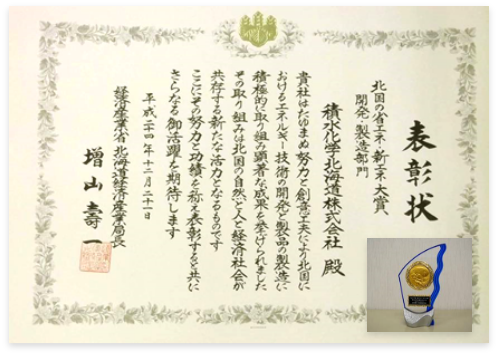 表彰状
北国の省エネ・新エネ大賞
開発・製造部門
積水化学北海道株式会社 殿
貴社はたゆまぬ努力と創意工夫により北国に
おけるエネルギー技術の開発と製品の製造に
積極的に取り組み顕著な成果を挙げられました
その取り組みは北国の自然と人と経済社会が
共存する新たな活力となるものです
ここにその努力と功績を称え表彰すると共に
さらなる御活躍を期待します
平成二十四年十二月二十一日
経済産業省 北海道経済産業局長
増山壽一